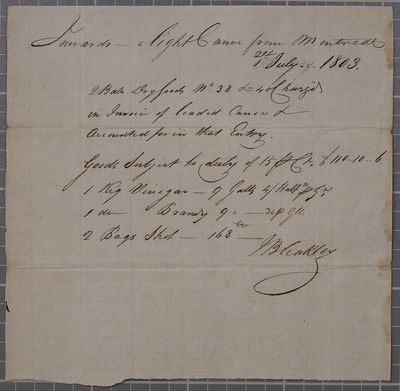 Inwards — a light Canoe from Montreal
1st July 1803.
2 Bales Dry Goods No 38 & 40 Charg'd
in Invoice of loaded Canoe &
Accounted for in that Entry.
Goods Subject to duty of 15 ⅌ Ct £ 40.10.6
1 Keg Vinegar — 9 Galls
1 do Brandy 9 " —
2 Bags Shot — 168 lb —
J Bleakley